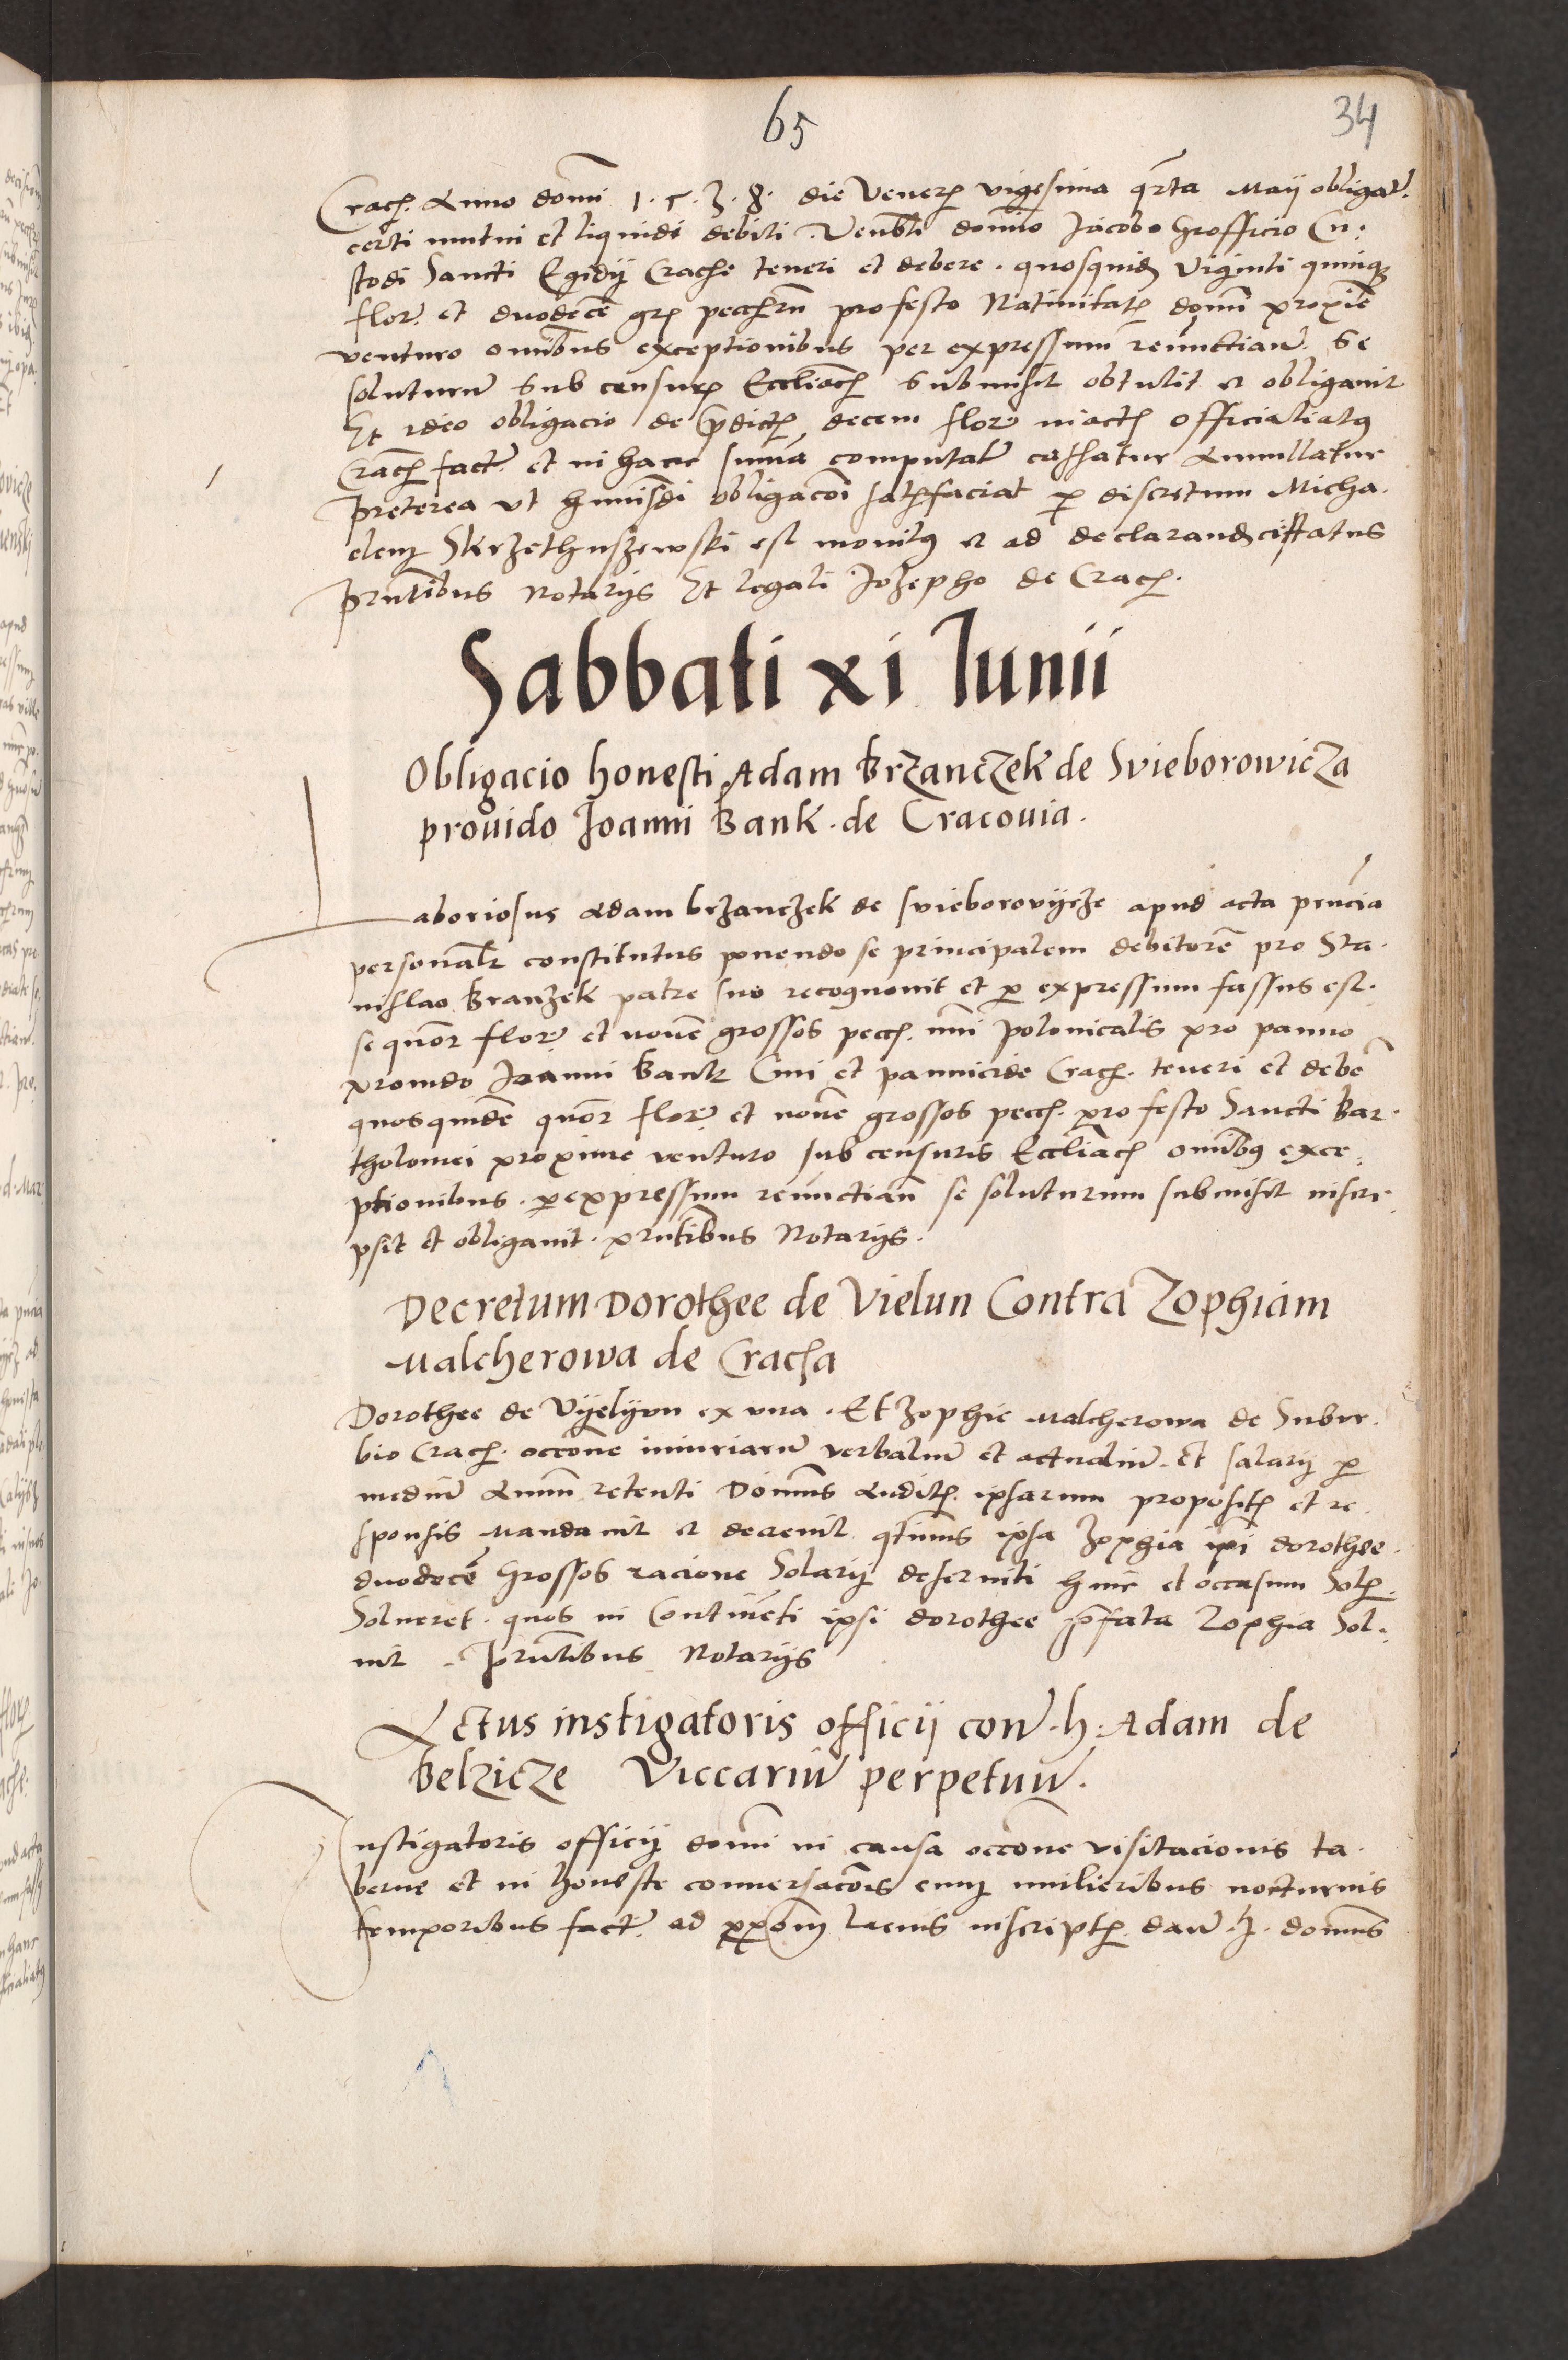 65
34
Crac. Anno domi 1.5.3.8. die Veneris vigesima qrta Maij obligat.
certi mutui et liquidi debiti. Venbli domino Jacobo Grofficio Cu:
stodi Sancti Egidij Crac. teneri et debere. quosquid Viginti quinq
flor. et duodece gr peccrum pro festo Natiuitatis domi proxime
venturo omibus exceptionibus per expressum renunctian. Se
soluturum sub censuris Eccliac submisit obtulit et obligauit
Et ideo obligacio de pdictis decem flor. in actis officialatus
Crac fact. et in hanc suma computat cassatur Annullatur
Preterea vt huiusdi obligacoi satisfaciat p discretum Micha.
elem Skrzethuszewski est monitus et ad declarand cittatus
Prntibus Notarijs Et legali Jozepho de Crac.
Sabbati xi Iunii
Obligacio honesti Adam Brzanczek de Svieborowicza
prouido Joanni Bank. de Cracouia.
Laboriosus Adam brzanczek de svieborovijcze apud acta prncia
personalr constitutus ponendo se principalem debitore pro Sta.
nislao Branzek patre suo recognouit et p expressum fassus est.
se quor flor. et noue grossos pecc. mni polonicalis pro panno
prouido Joanni Bank Ciui et pannicide Crac. teneri et debe
quos quide quor flor. et noue grossos pecc. pro festo Sancti Bar.
tholomei proxime venturo sub censuris Eccliac omibus exce.
ptionibus. p expressum renunctian se soluturum submisit inscri.
psit et obligauit. prntibus Notarijs.
Decretum Dorothee de Vielun Contra Zophiam
Malcherowa de Cracha
Dorothee de Vyelyun ex vna. Et Zophie Malcherowa de Subur.
bio Crac. occone iniuriarum verbalium et actualium. et salarij p
medium Annum retenti Dominus Auditis ipsarum propositis et re.
sponsis Mandauit et decreuit qtinus ipsa Zophia ipi dorothee.
duodece Grossos racione Solarij deseruiti hinc et occasum Solis.
Solueret. quos in Continēti ipsi dorothee pfata Zophia Sol.
uit. Prntibus Notarijs
Actus instigatoris officij con. h: Adam de
Belzicze Viccarium perpetuum.
Instigatoris officij domi in causa occone visitacionis ta.
berne et in honeste conuersacois cum mulieribus nocturnis
temporibus fact. ad lacius inscriptis dan. domus